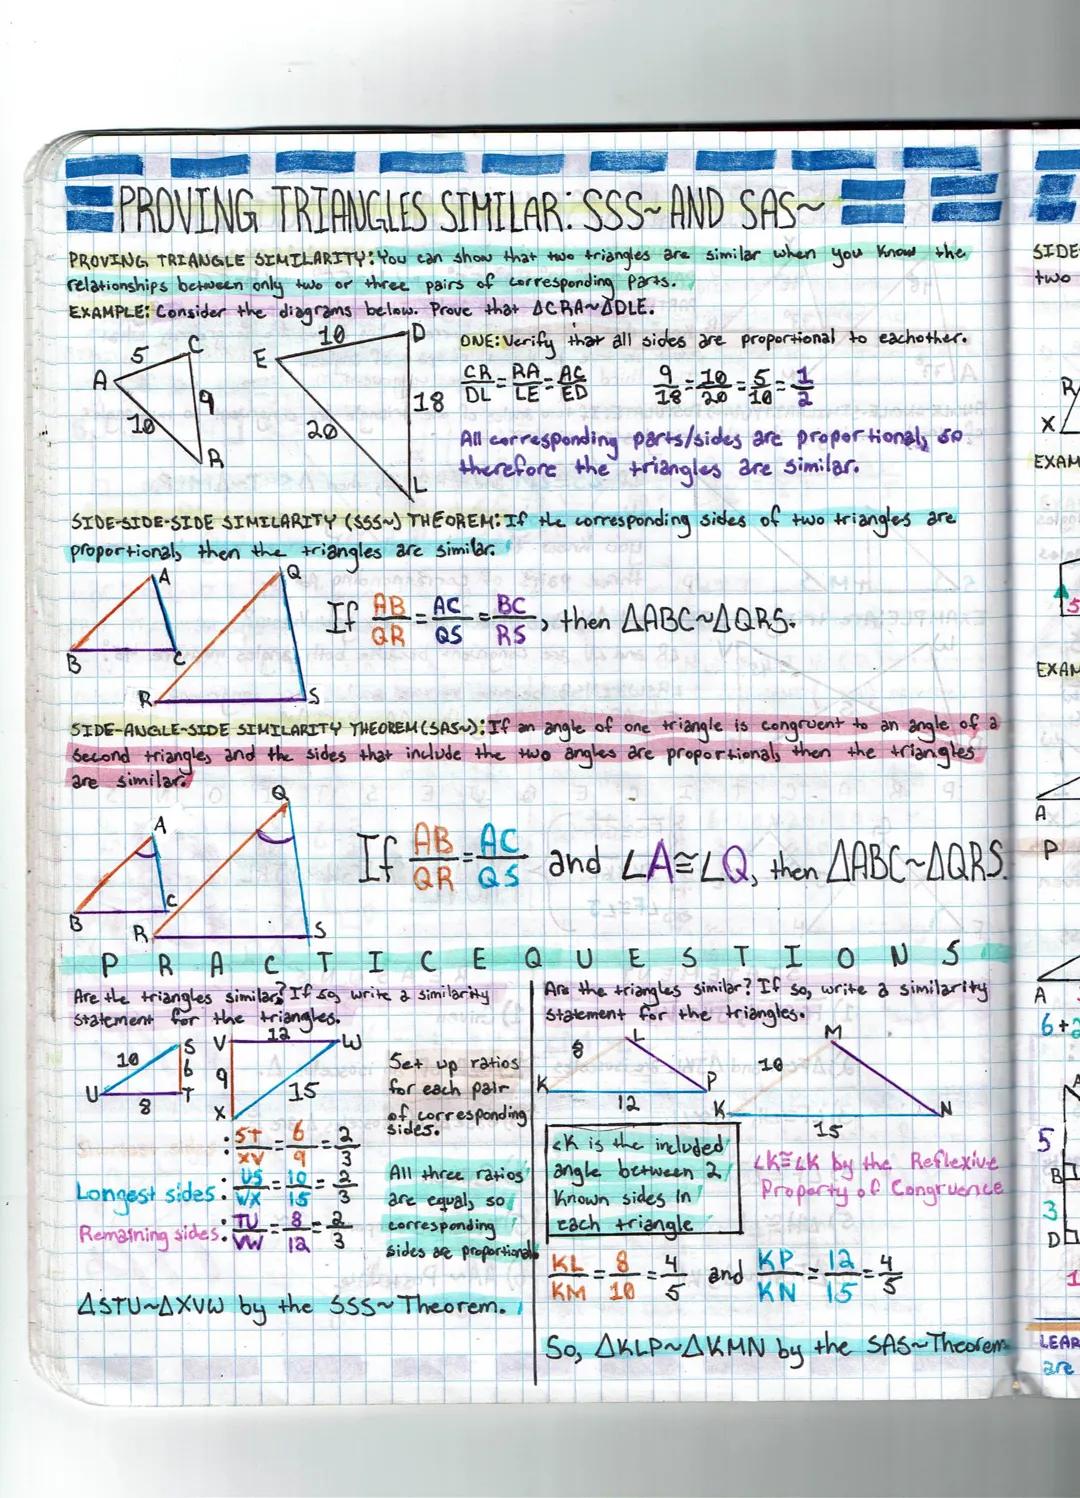 PROVING TRIANGLES SIMILAR: SSS~ AND SAS~
PROVING TRIANGLE SIMILARITY: You can show that two triangles are similar when you know the
relationships between only two or three pairs of corresponding parts.
EXAMPLE: Consider the diagrams below. Prove that ΔCRA~ΔDLE.
5
C
A
9
10
R
E
10
D
18
20
L
ONE: Verify that all sides are proportional to eachother.
CR/DL = RA/LE = AC/ED 9/18 = 10/20 = 5/10 = 1/2
All corresponding parts/sides are proportional, so
therefore the triangles are similar.
SIDE-SIDE-SIDE SIMILARITY (SSS~) THEOREM: If the corresponding sides of two triangles are
proportional, then the triangles are similar.
A
Q
B
C
R
S
If AB/QR = AC/QS = BC/RS, then ΔABC~ΔQRS.
SIDE-ANGLE-SIDE SIMILARITY THEOREM (SAS~): If an angle of one triangle is congruent to an angle of a
second triangle, and the sides that include the two angles are proportional, then the triangles
are similar.
Q
A
B
C
R
S
If AB/QR = AC/QS and ∠A≅∠Q, then ΔABC~ΔQRS.
PRACTICE QUESTIONS
Are the triangles similar? If so, write a similarity
statement for the triangles.
10
S
6
U
8
T
V
12
W
9
15
X
Set up ratios
for each pair
of corresponding
sides.
: ST/XV = 6/9 = 2/3
Longest sides: US/WX = 10/15 = 2/3
Remaining sides: TU/VW = 8/12 = 2/3
All three ratios
are equal, so
corresponding
sides are proportional
ΔSTU~ΔXVW by the SSS~ Theorem.
Are the triangles similar? If so, write a similarity
statement for the triangles.
8
L
K
12
P
M
10
K
15
N
∠K is the included
angle between 2
known sides in
each triangle
∠K≅∠K by the Reflexive
Property of Congruence
KL/KM = 8/10 = 4/5 and KP/KN = 12/15 = 4/5
So, ΔKLP~ΔKMN by the SAS~Theorem
SIDE
two
R
X
EXAM
5
EXAM
A
P
A
6+2
A
5
B
3
D
1
LEAR
are